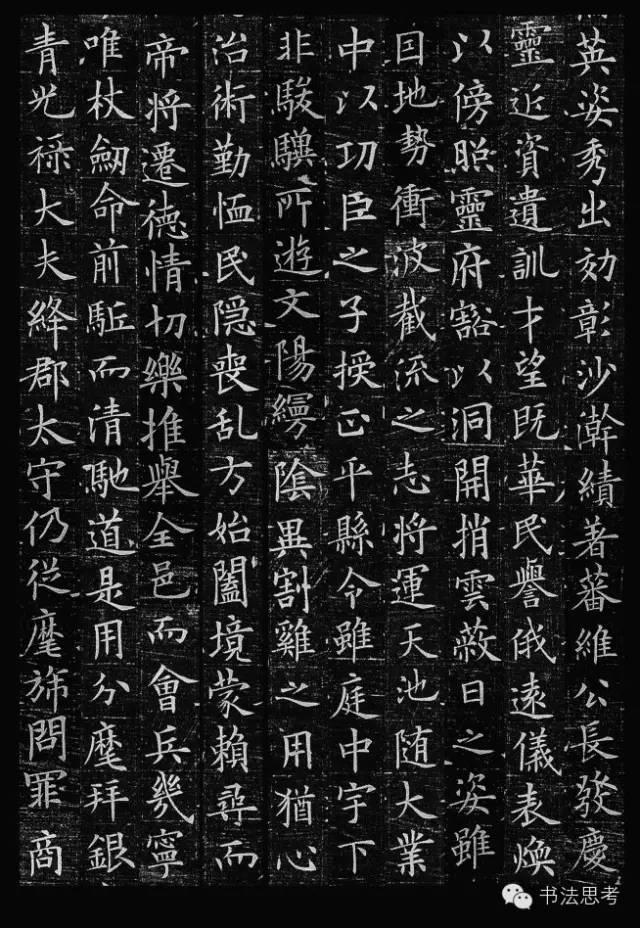 英姿秀出効彰沙漷績著蕃維公長發慶
靈近資遺訓才望既華民譽俄遠儀表煥
以傍照靈府豁以洞開捎雲蔽日之姿雖
因地勢衝波截流之志将運天池随大業
中以功臣之子授正平縣令雖庭中宇下
非駿驥所遊文陽縵陰異割雞之用猶心
治術勤恤民隠喪乱方始闔境蒙賴尋而
帝将遷德情切樂推舉全邑而會兵幾寧
唯杖劒命前駈而清馳道是用分麾拜銀
青光禄大夫絳郡太守仍従麾斾問罪商
书法思考